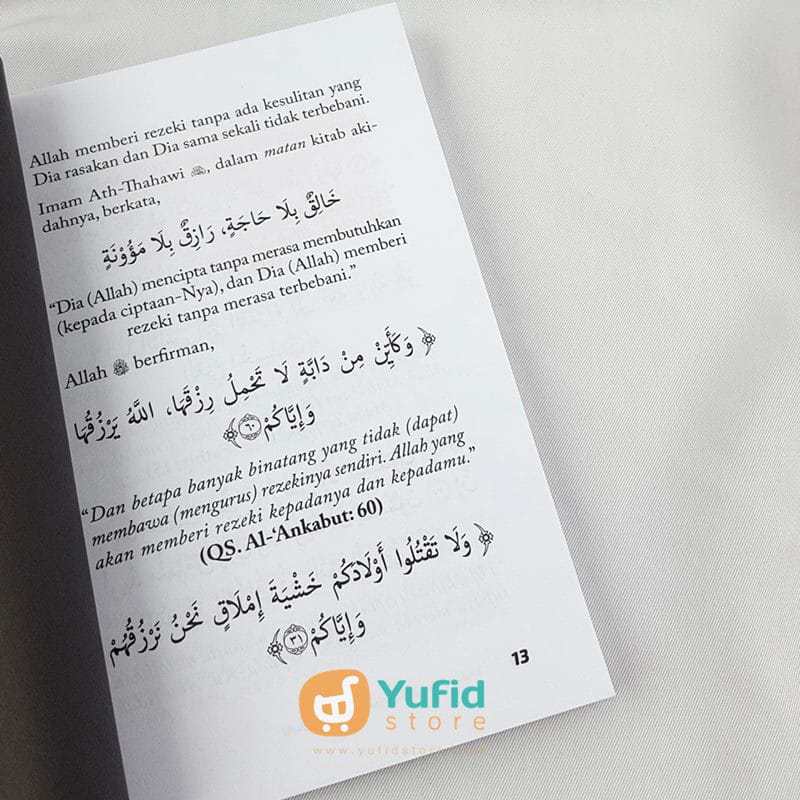 Allah memberi rezeki tanpa ada kesulitan yang
Dia rasakan dan Dia sama sekali tidak terbebani.
Imam Ath-Thahawi, dalam matan kitab aki-
dahnya, berkata,
خَالِقٌ بِلَا حَاجَةٍ، رَازِقٌ بِلَا مَؤُوْنَةٍ
“Dia (Allah) mencipta tanpa merasa membutuhkan
(kepada ciptaan-Nya), dan Dia (Allah) memberi
rezeki tanpa merasa terbebani.”
Allah ﷻ berfirman,
﴿ وَكَأَيِّنْ مِنْ دَابَّةٍ لَا تَحْمِلُ رِزْقَهَا، اللَّهُ يَرْزُقُهَا
وَإِيَّاكُمْ ۝٦٠ ﴾
“Dan betapa banyak binatang yang tidak (dapat)
membawa (mengurus) rezekinya sendiri. Allah yang
akan memberi rezeki kepadanya dan kepadamu.”
(QS. Al-‘Ankabut: 60)
﴿ وَلَا تَقْتُلُوا أَوْلَادَكُمْ خَشْيَةَ إِمْلَاقٍ نَحْنُ نَرْزُقُهُمْ
وَإِيَّاكُمْ ۝٣١ ﴾
13
Yufid
store